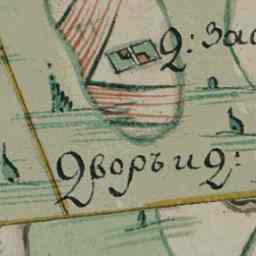 2: Зас
Дворъ и 2: